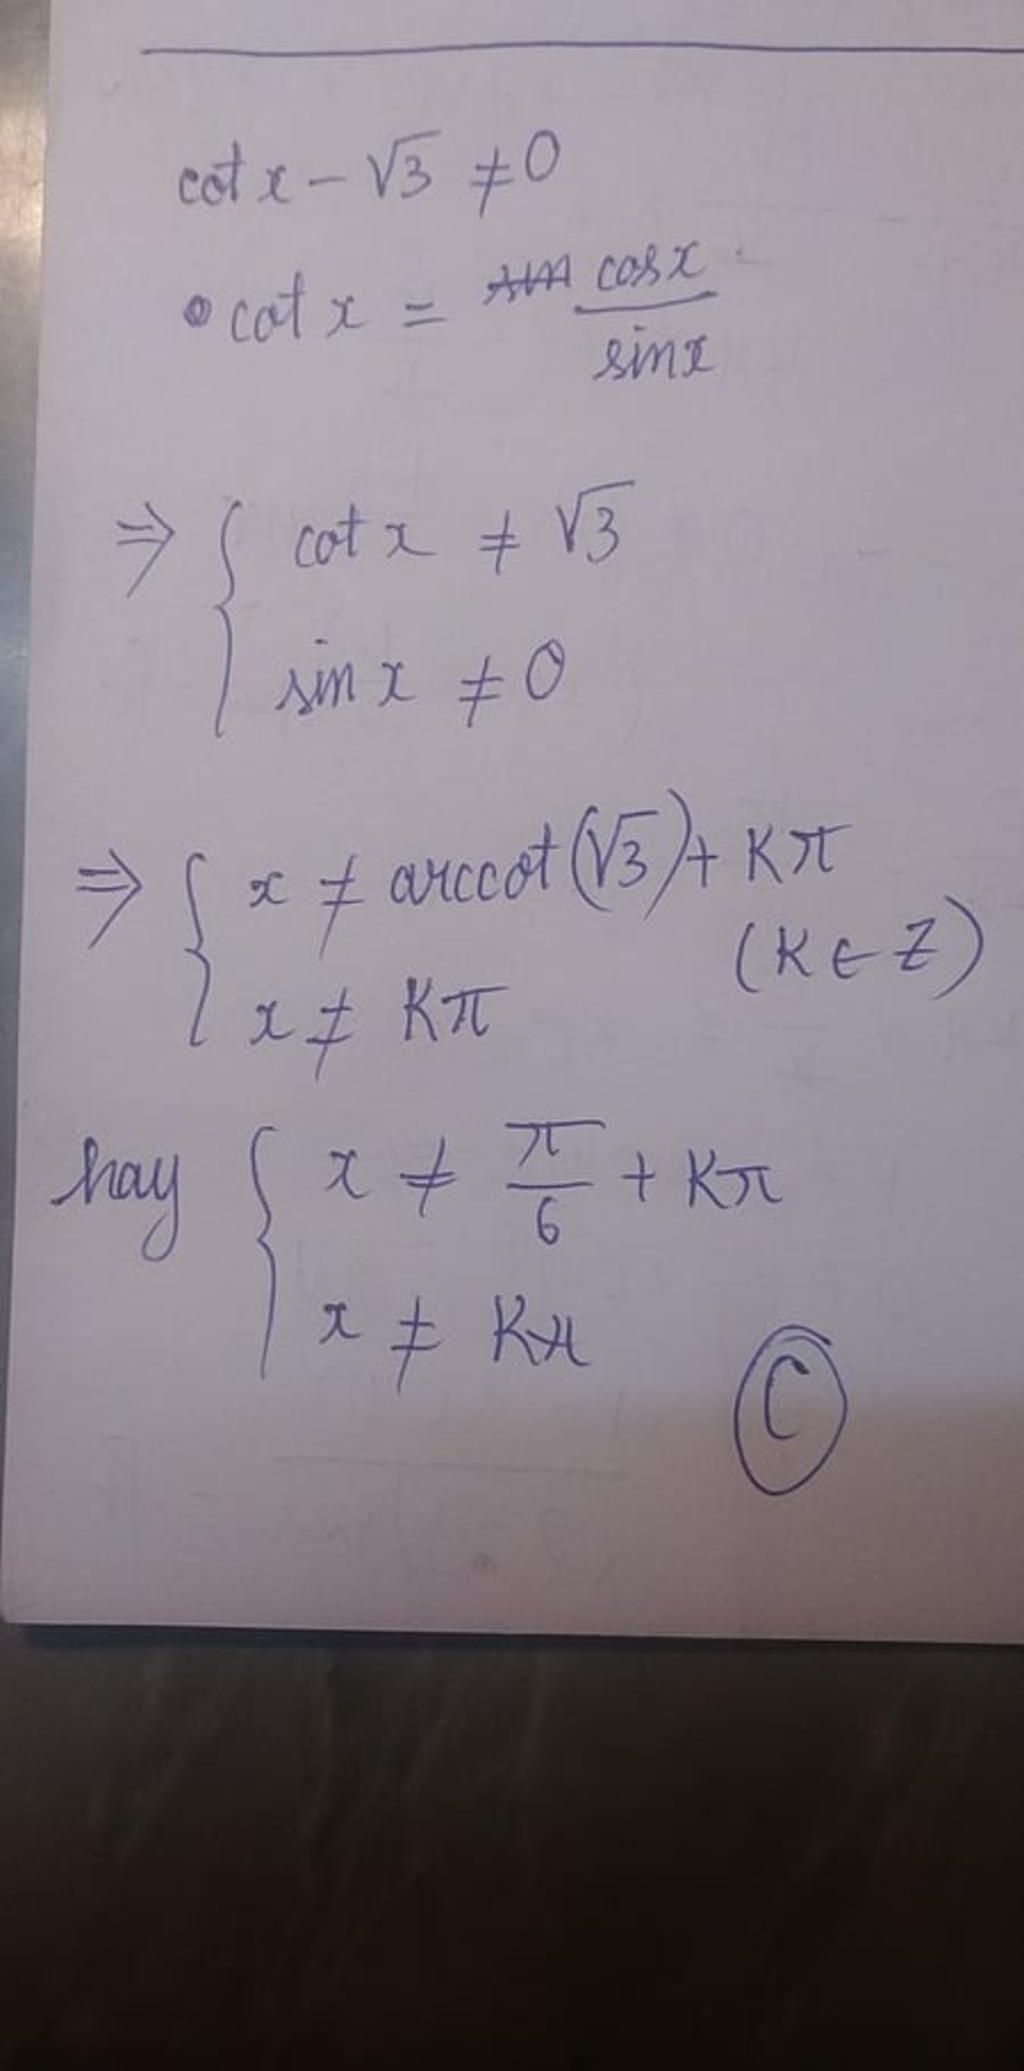 cot x - √3 ≠ 0
• cot x = cosx / sinx
⇒ { cot x ≠ √3
sin x ≠ 0
⇒ { x ≠ arccot(√3) + Kπ
(K ∈ Z)
x ≠ Kπ
hay { x ≠ π/6 + Kπ
x ≠ Kπ
C